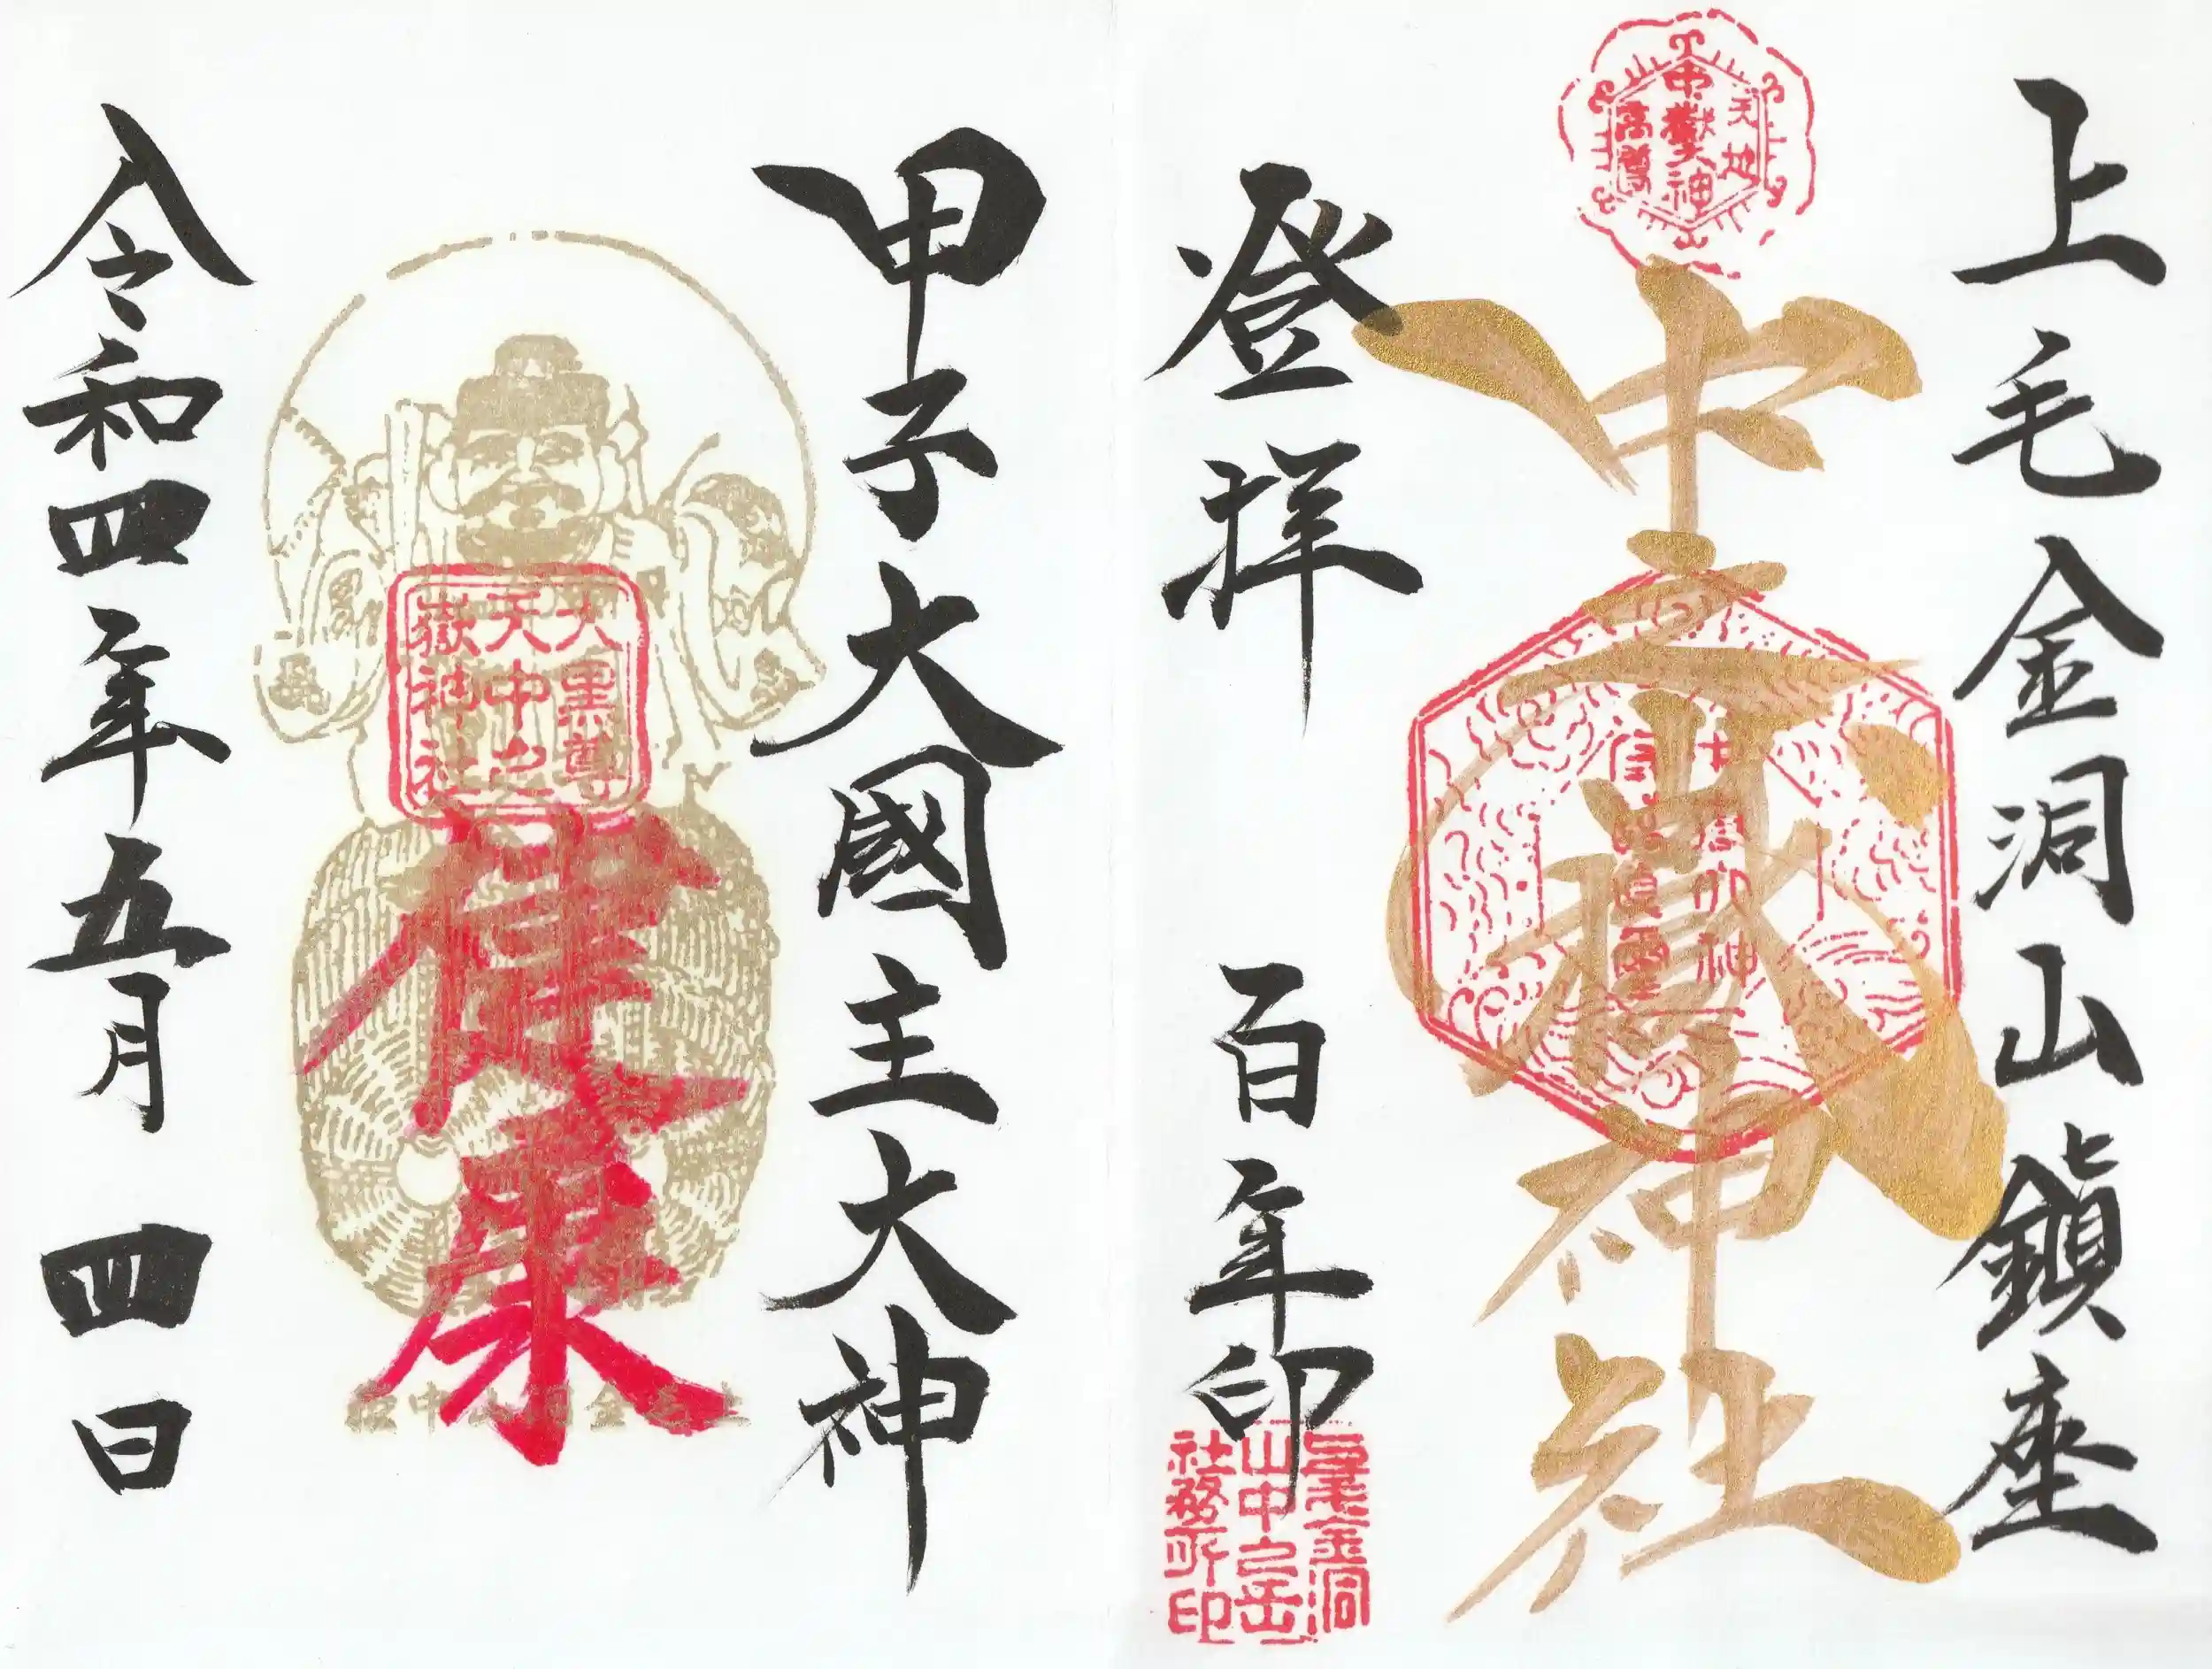 上毛金洞山鎮座
天地
中嶽大神
高尊
中之嶽神社
登拝
百年印
上毛金洞
山中之岳
社務所印
甲子大國主大神
大黒尊
天中之
嶽神社
健康
令和四年五月四日